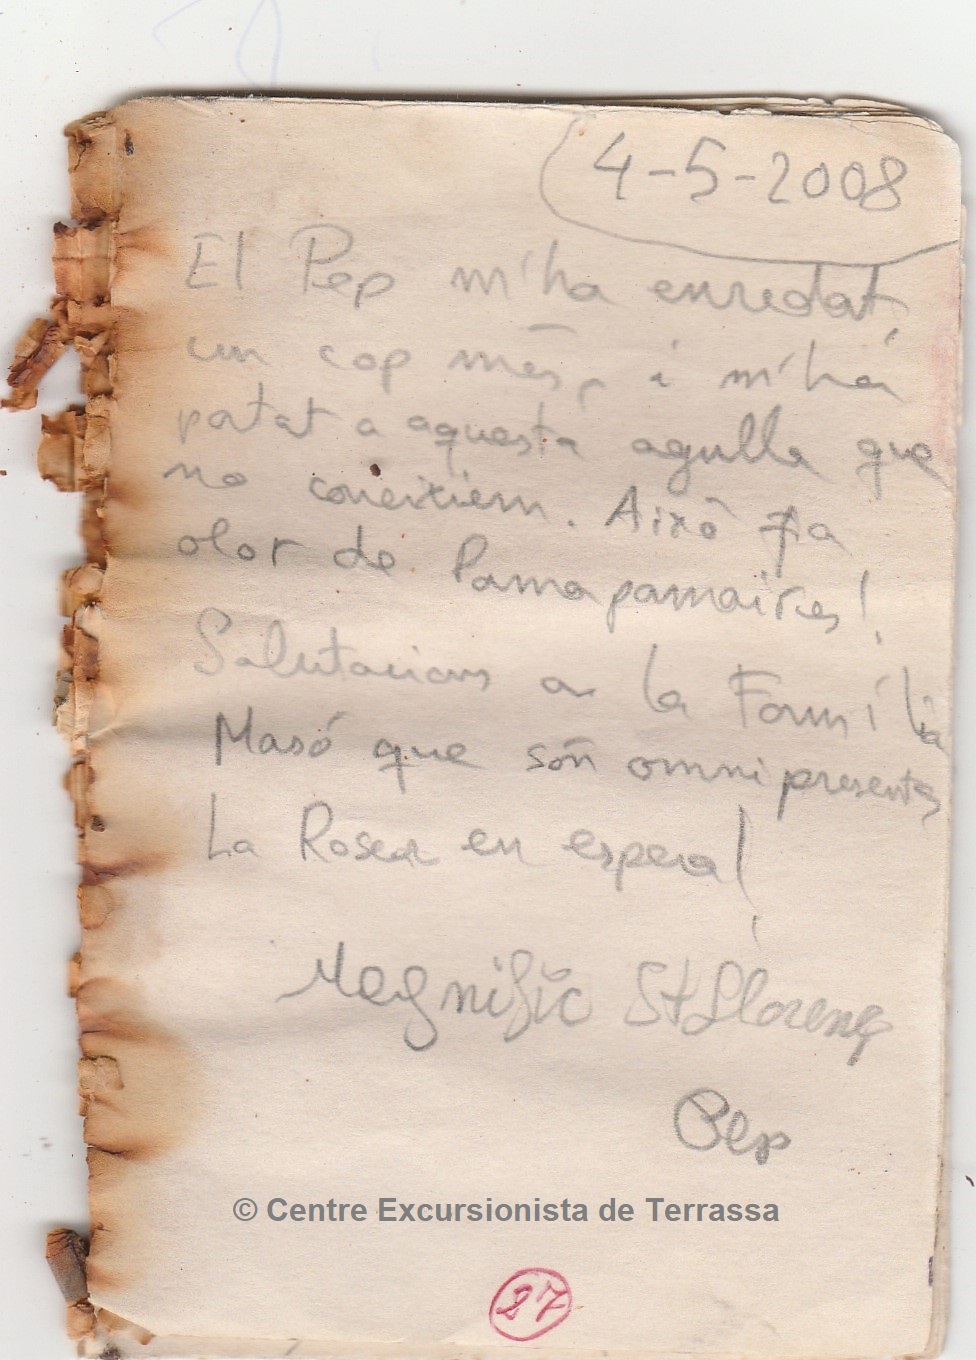 4-5-2008
El Pep m'ha enredat,
un cop més, i m'ha
portat a aquesta agulla que
no coneixiem. Això fa
olor de Pamapamaires!
Salutacions a la Família
Masó que són omnipresents
La Roser en espera!
Magnífic St Llorenç
Pep
© Centre Excursionista de Terrassa
27